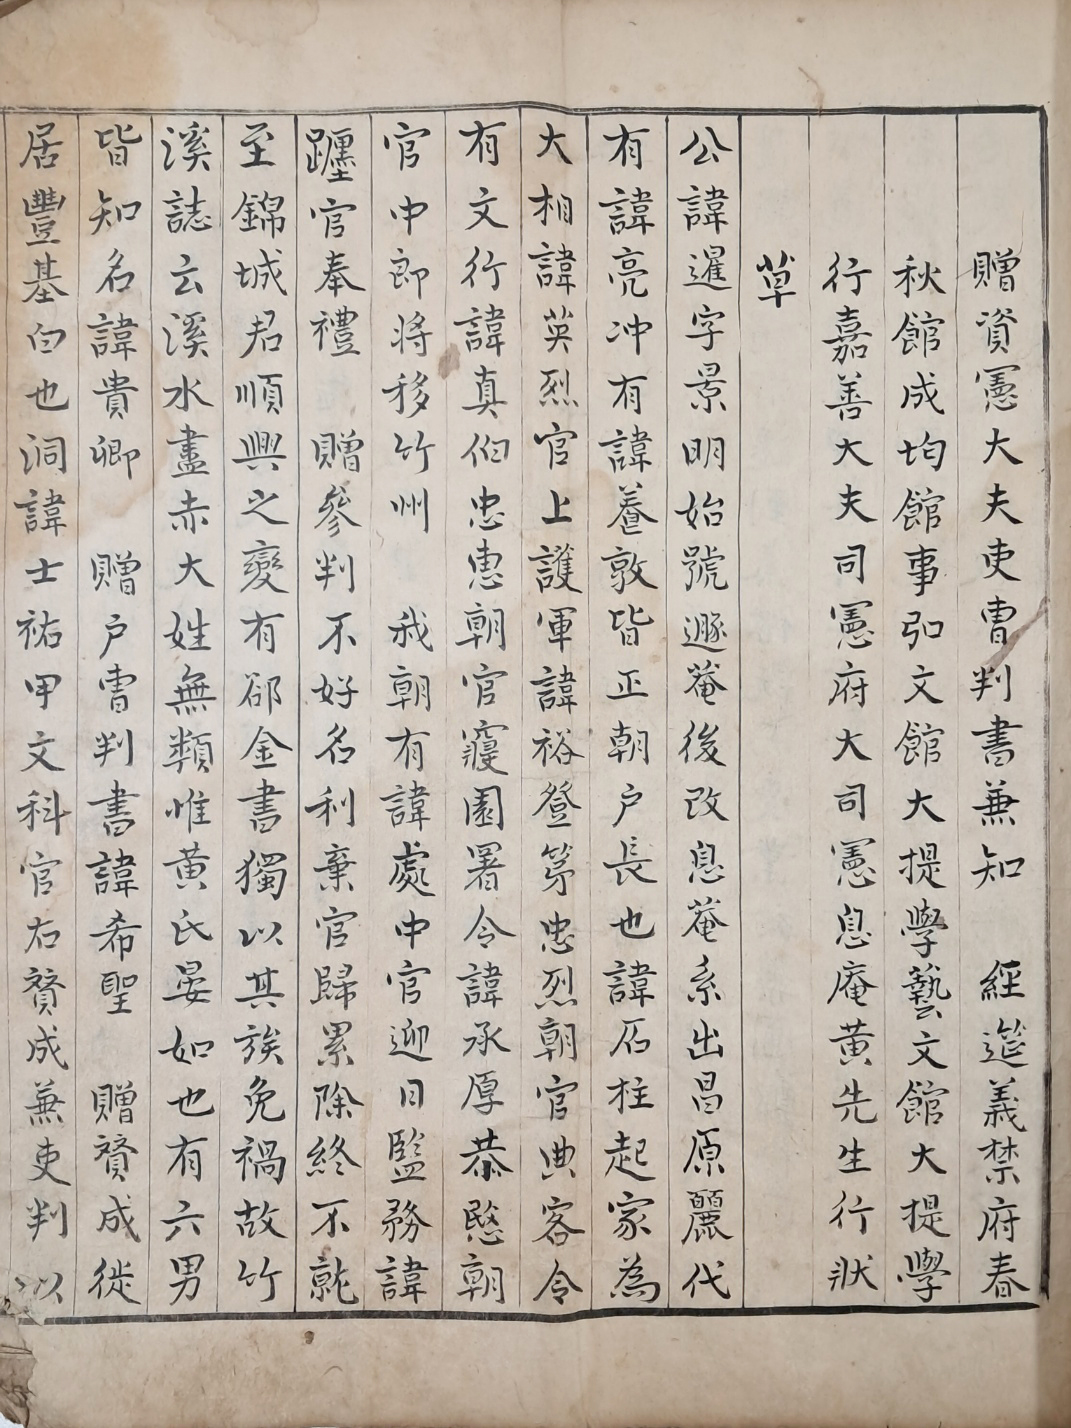 贈資憲大夫吏曹判書兼知　經筵義禁府春
秋館成均館事弘文館大提學藝文館大提學
行嘉善大夫司憲府大司憲息庵黃先生行狀
草
公諱暹字景明始號遯菴後改息菴系出昌原麗代
有諱亮冲有諱養敦皆正朝户長也諱石柱起家為
大相諱英烈官上護軍諱裕登第忠烈朝官典客令
有文行諱真伯忠惠朝官寢園署令諱承厚恭愍朝
官中郎將移竹州　我朝有諱處中官迎日監務諱
躔官奉禮　贈叅判不好名利棄官歸累除終不就
至錦城君順興之變有郤金書獨以其族免禍故竹
溪誌云溪水盡赤大姓無類惟黃氏晏如也有六男
皆知名諱貴卿　贈户曹判書諱希聖　贈賛成徙
居豐基白也洞諱士祐甲文科官右賛成兼吏判以